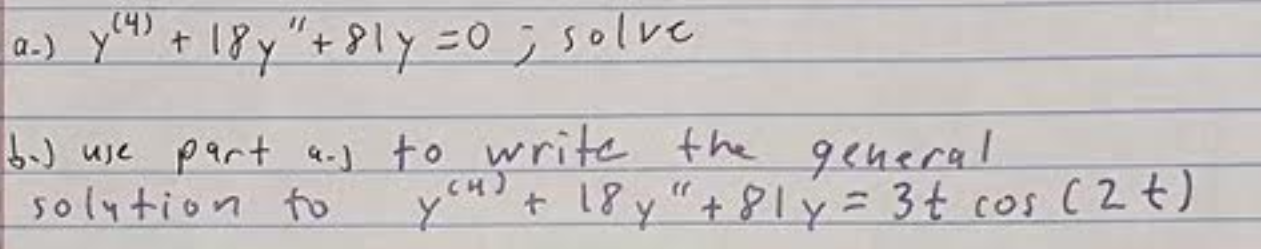 a.) y⁽⁴⁾ + 18y" + 81y = 0 ; solve
b.) use part a.) to write the general
solution to y⁽⁴⁾ + 18y" + 81y = 3t cos (2t)